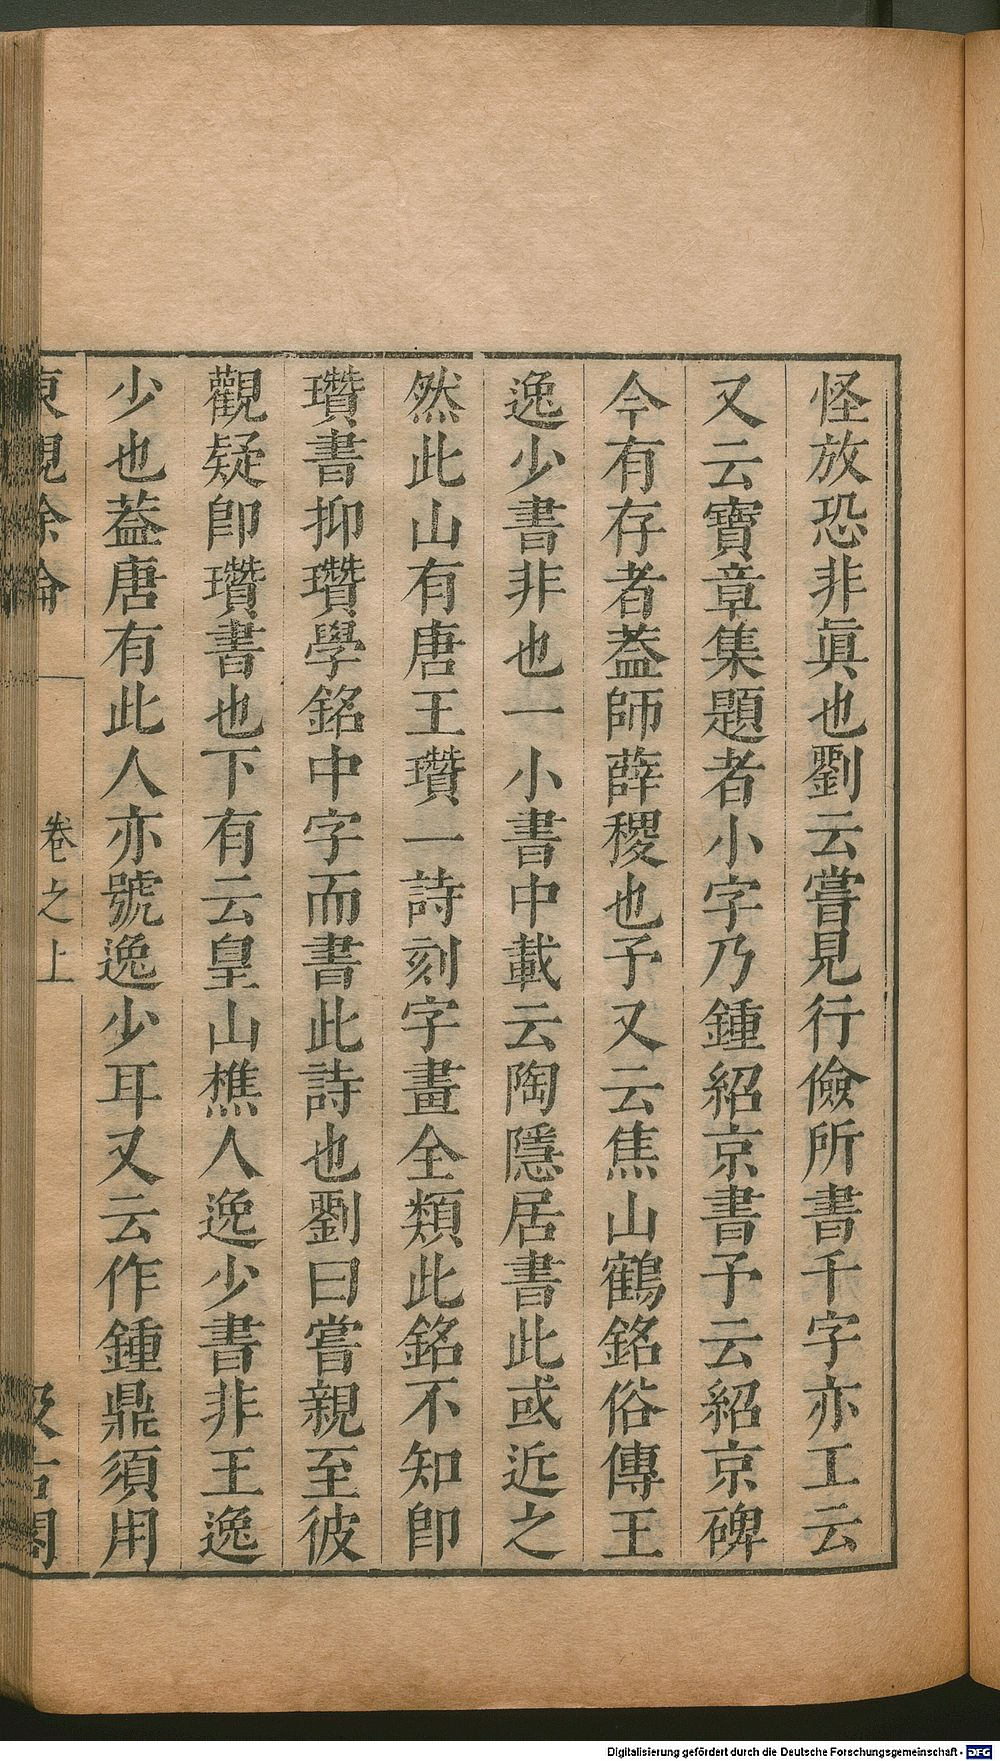 怪放恐非眞也劉云嘗見行儉所書千字亦工云
又云寶章集題者小字乃鍾紹京書予云紹京碑
今有存者葢師薛稷也予又云焦山鶴銘俗傳王
逸少書非也一小書中載云陶隱居書此或近之
然此山有唐王瓚一詩刻字畫全類此銘不知卽
瓚書抑瓚學銘中字而書此詩也劉曰嘗親至彼
觀疑卽瓚書也下有云皇山樵人逸少書非王逸
少也葢唐有此人亦號逸少耳又云作鍾鼎須用
東觀餘論
卷之上
汲古閣
Digitalisierung gefördert durch die Deutsche Forschungsgemeinschaft - DFG